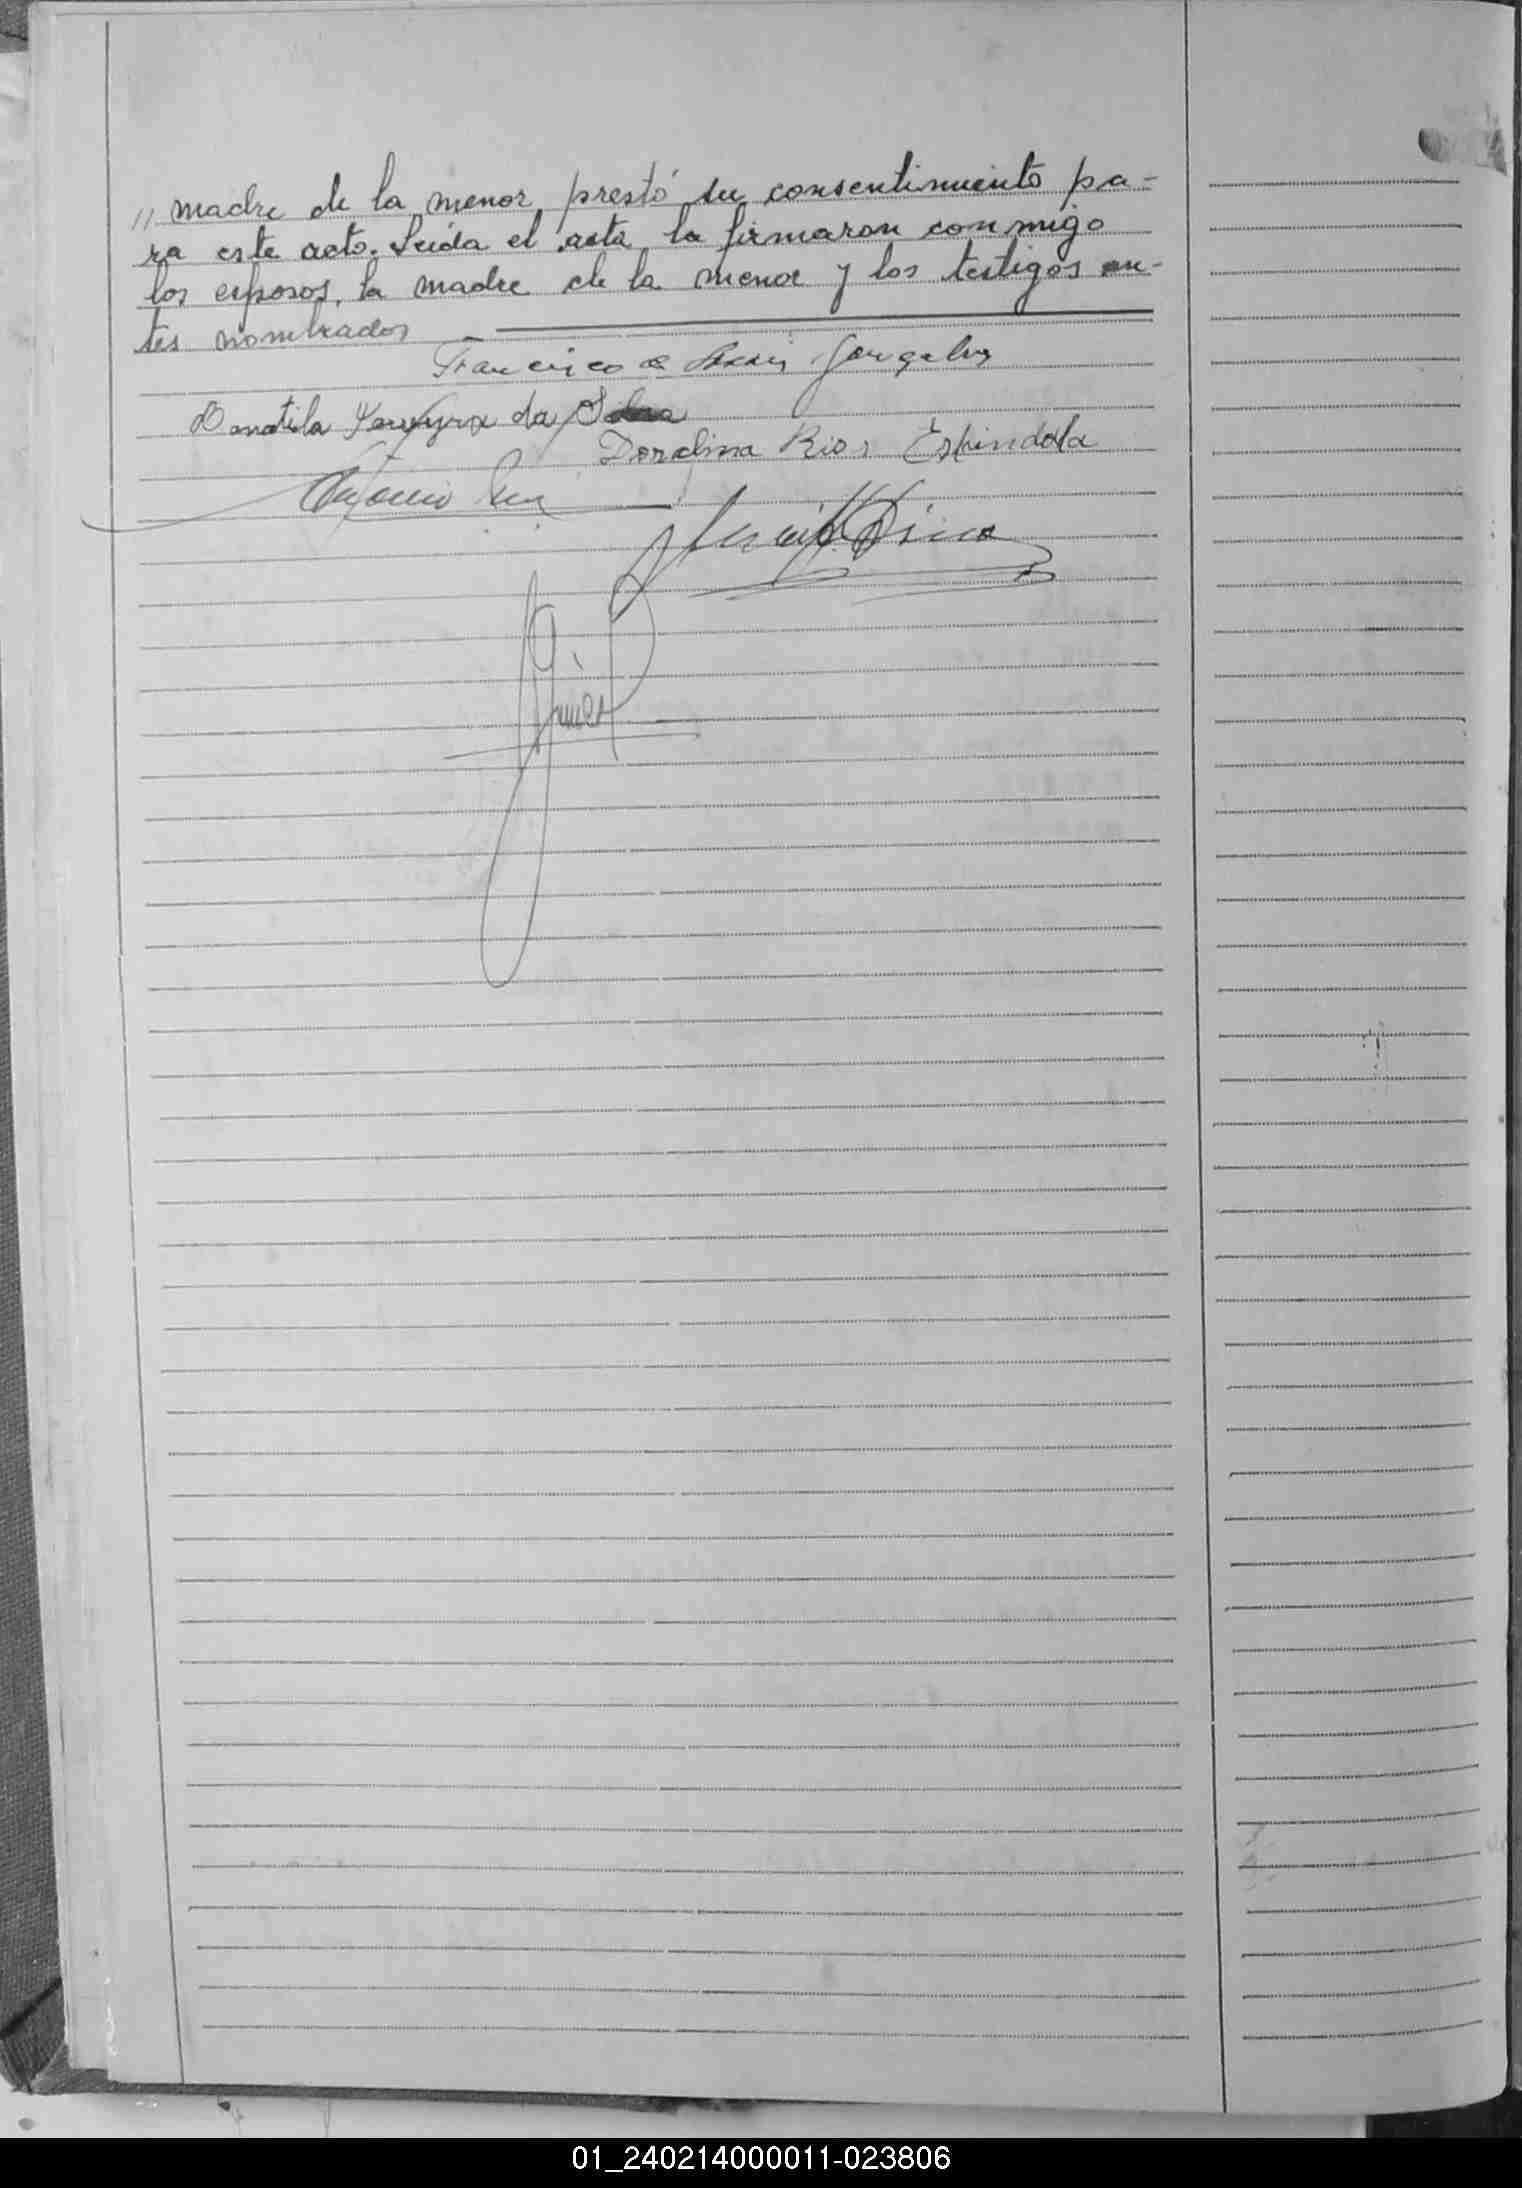 // madre de la menor, prestó su consentimiento pa-
ra este acto. Leída el acta, la firmaron conmigo
los esposos, la madre de la menor y los testigos an-
tes nombrados
Francisco de Assis Gonçalves
Donatila Ferreyra da Silva
Doralina Rios Espindola
Antonio
01_240214000011-023806